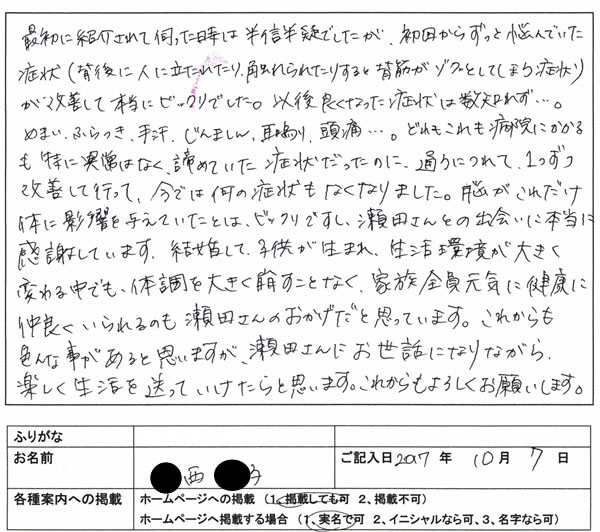 最初に紹介されて伺った時は半信半疑でしたが、初回からずっと悩んでいた
症状(背後に人に立たれたり、触れられたりすると背筋がゾクッとしてしまう症状)
が改善して本当にビックリでした。以後良くなった症状は数知れず…。
めまい、ふらつき、手汗、じんましん、耳鳴り、頭痛…。どれもこれも病院にかかる
も特に異常はなく、諦めていた症状だったのに、通うにつれて、1つずつ
改善して行って、今では何の症状もなくなりました。脳がこれだけ
体に影響を与えていたとは、ビックリですし、瀬田さんとの出会いに本当に
感謝しています。結婚して、子供が生まれ、生活環境が大きく
変わる中でも、体調を大きく崩すことなく、家族全員元気に健康に
仲良くいられるのも瀬田さんのおかげだと思っています。これからも
色んな事があると思いますが、瀬田さんにお世話になりながら、
楽しく生活を送っていけたらと思います。これからもよろしくお願いします。
ふりがな
お名前 西 子 ご記入日 2017 年 10 月 7 日
各種案内への掲載 ホームページへの掲載 (1、掲載しても可 2、掲載不可)
ホームページへ掲載する場合 (1、実名で可 2、イニシャルなら可、3、名字なら可)